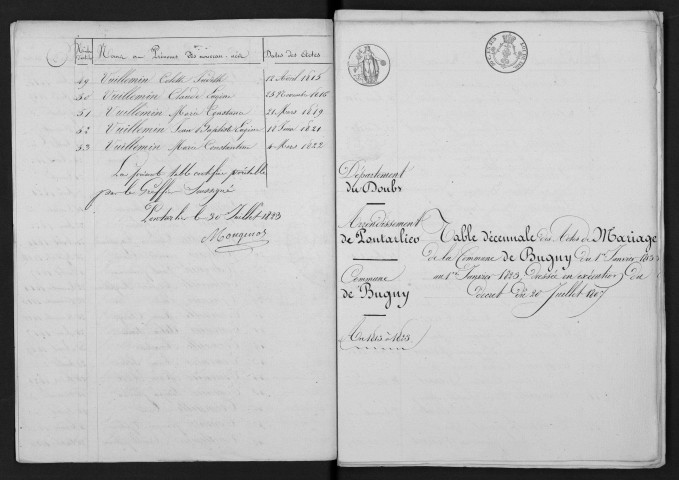 Noms et Prénoms des nouveau-nés
Dates des Actes
49 Vuillemin Colette
12 Avril 1815
50 Vuillemin Claude Eugène
1816
51 Vuillemin Marie
21 Mars 1819
52 Vuillemin Jean Baptiste Eugène
1821
53 Vuillemin Marie Constantine
4 Mars 1822
La présente table certifiée véritable
par le Greffier Soussigné
Pontarlier le 30 Juillet 1823
Département
du Doubs
Arrondissement
de Pontarlier
Commune
de Bugny
An 1813 à 1823
Table décennale des Actes de Mariage
de la Commune de Bugny du 1er Janvier 1813
au 1er Janvier 1823, dressée en exécution du
décret du 20 Juillet 1807